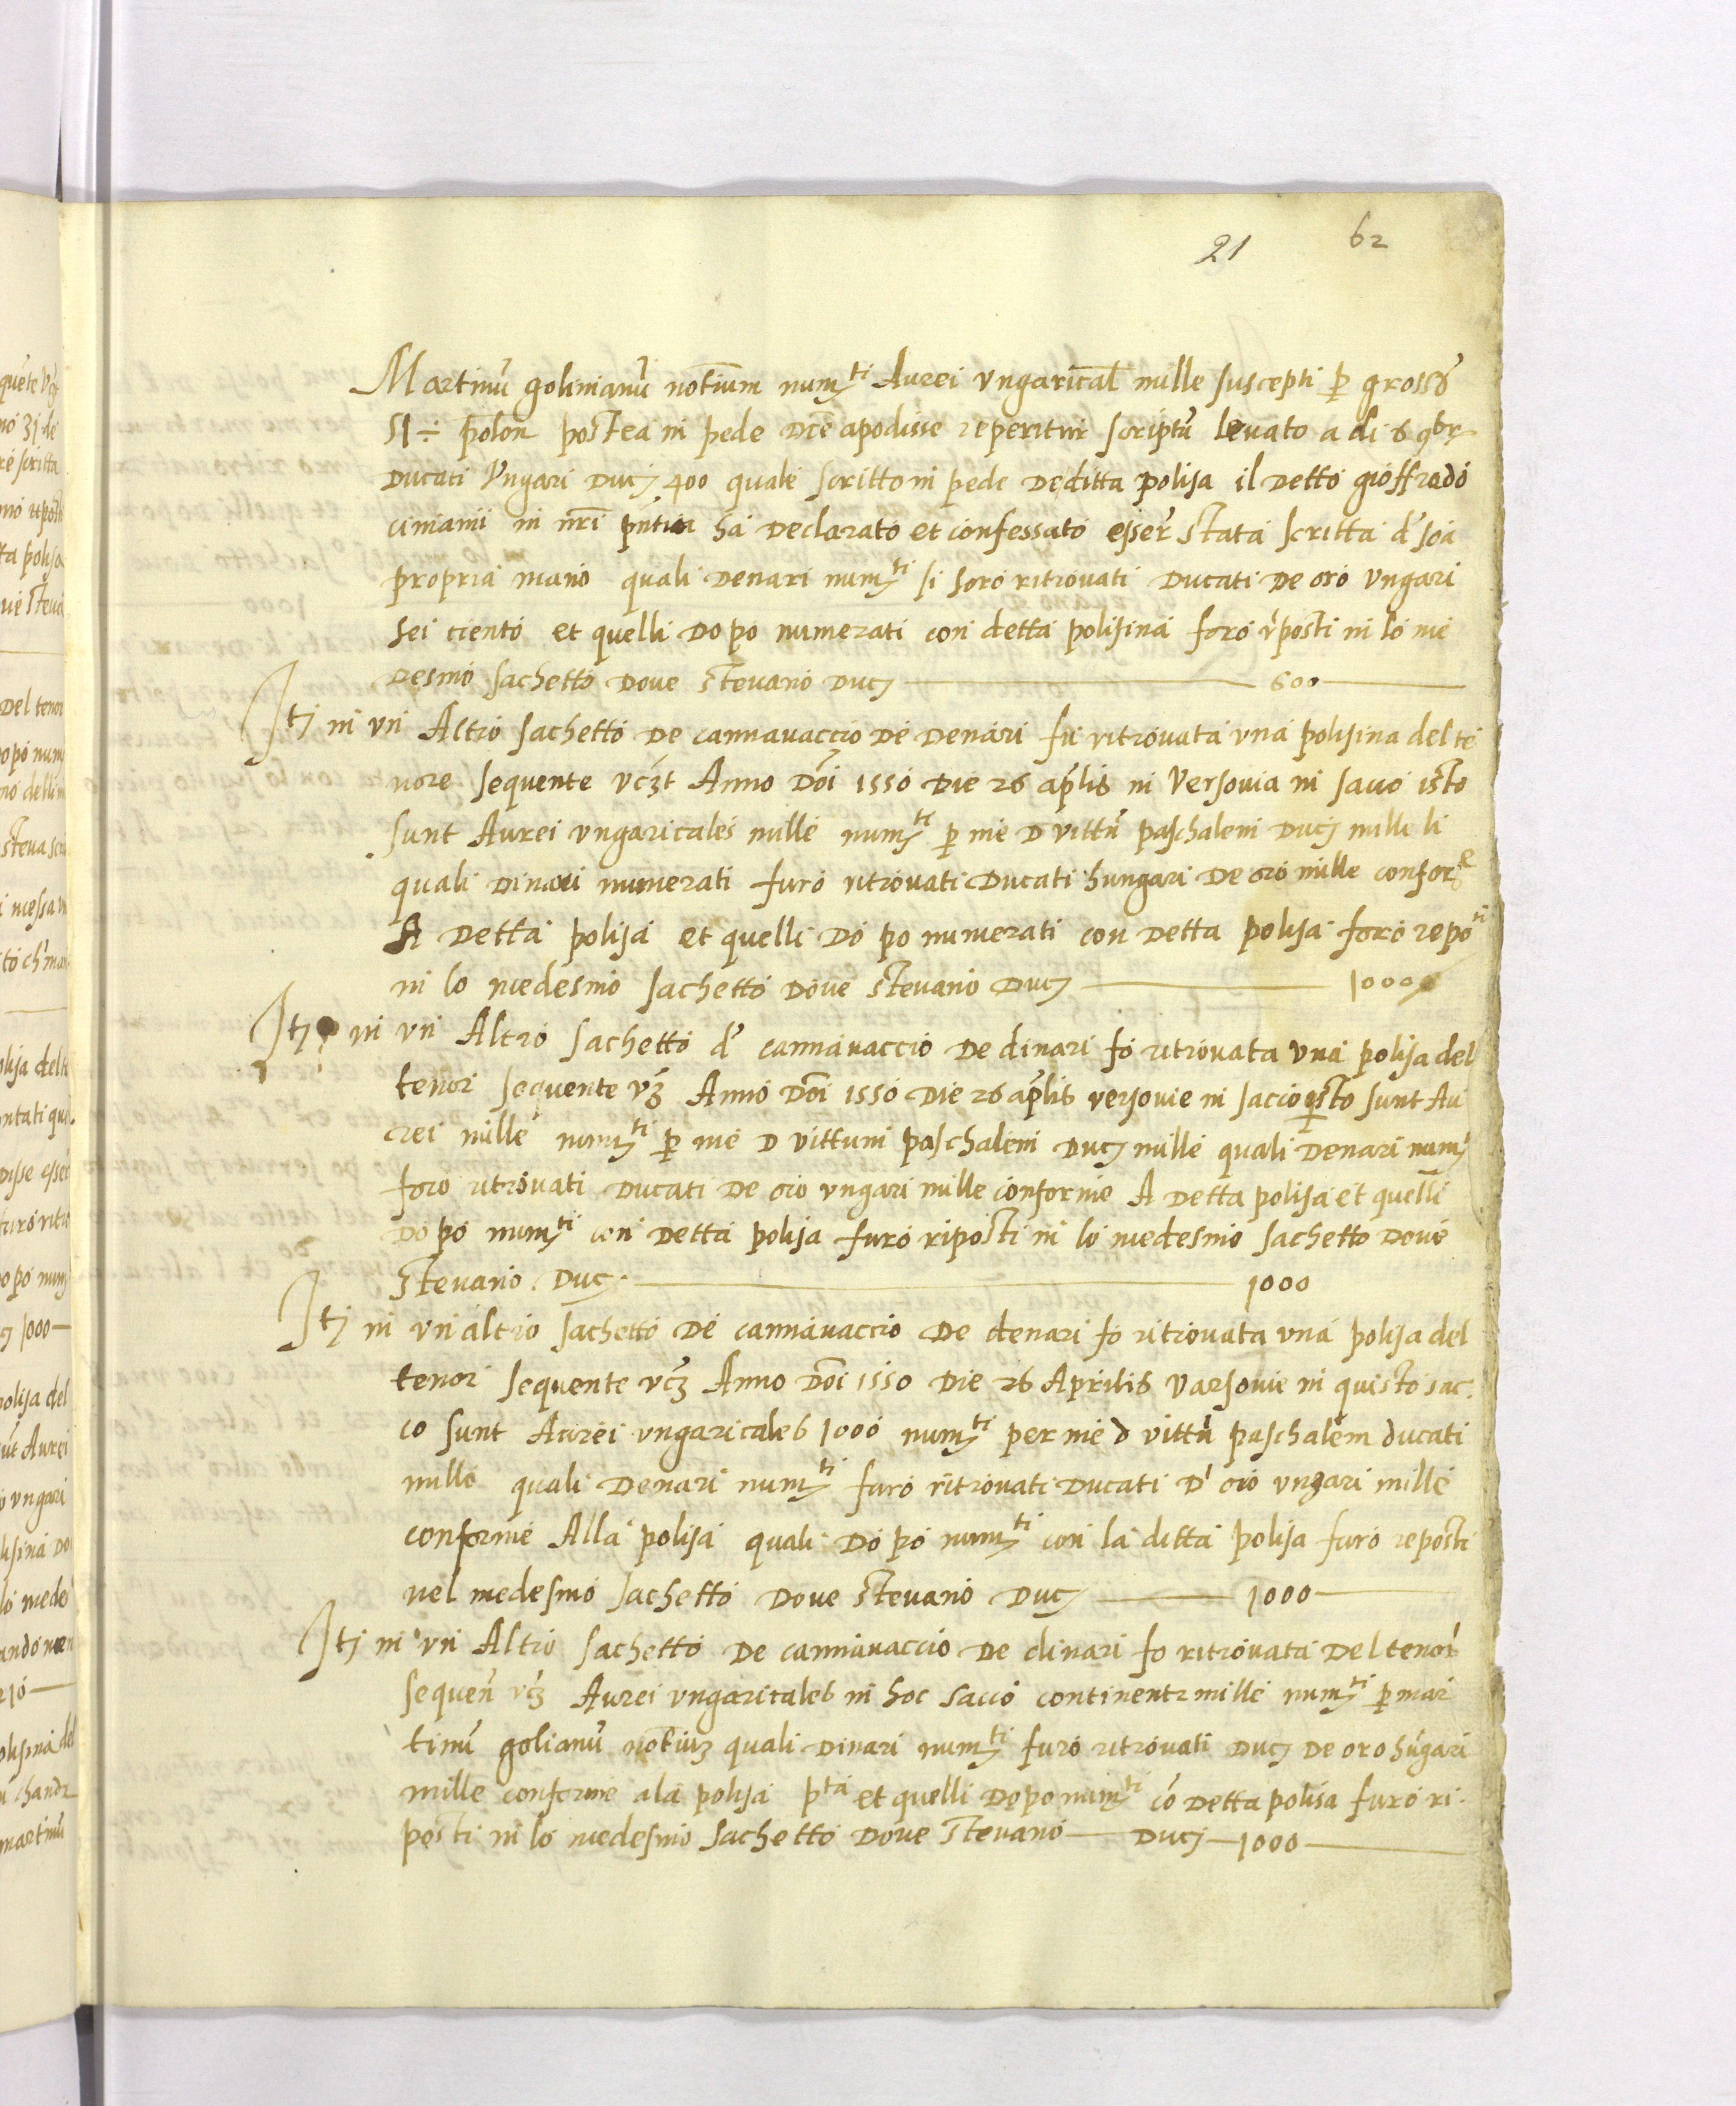 21 62
Martinū golinianū notium numti Aurei ungarical mille suscepti p grossos
51 ÷ polon postea in pede Dce apodisse reperitur scriptū levato a di 6 9br
Ducati Vngari Duci 400 quale scritto in pede de ditta polisa il Detto gioffrado
cimianii in nri pntia ha Declarato et confessato esser stata scritta d' soa
propria mano quali Denari numti si foro ritrovati Ducati De oro Vngari
Sei ciento et quelli Dopo numerati con detta polisina foro riposti in lo me
Desmo sachetto Dove stevano Duci 600
Iti in un Altro sachetto De cannavaccio De Denari fu ritrovata una polisina del te
nore sequente vczt Anno Doi 1550 Die 26 aplis in Versovia in sacco isto
sunt Aurei ungaricales mille numti p me D vittū paschalem Duci mille li
quali Dinari numerati furo ritrovati Ducati hungari De oro mille conforme
A Detta polisa et quelli Do po numerati con Detta polisa foro repoti
in lo medesmo sachetto Dove stevano Duci 1000
Iti in un Altro sachetto d' cannavaccio De dinari fo ritrovata una polisa del
tenor sequente vz Anno Doi 1550 Die 26 aplis versovie in sacco isto sunt Au
rei mille numti p me D vittum paschalem Duci mille quali Denari numi
foro ritrovati Ducati De oro ungari mille conforme A Detta polisa et quelli
Do po numti con Detta polisa furo riposti in lo medesmo sachetto Dove
stevano Duci 1000
Iti in un altro sachetto De cannavaccio De denari fo ritrovata una polisa del
tenor sequente vcz Anno Doi 1550 Die 26 Aprilis Varsovie in quisto sac
co sunt Aurei ungaricales 1000 numti per me D vittū paschalem ducati
mille quali Denari numti furo ritrovati Ducati D' oro ungari mille
conforme Alla polisa quali Do po numti con la ditta polisa furo reposti
nel medesmo sachetto Dove stevano Duci 1000
Iti in un Altro sachetto De cannavaccio De dinari fo ritrovata Del tenor
sequen vz Aurei ungaricales in hoc sacco continentr mille numti p mar
tinū golianū notiuz quali Dinari numti furo ritrovati Duci De oro hūgari
mille conforme a la polisa pta et quelli Dopo numti cō Detta polisa furo ri
posti in lo medesmo sachetto Dove stevano Duci 1000